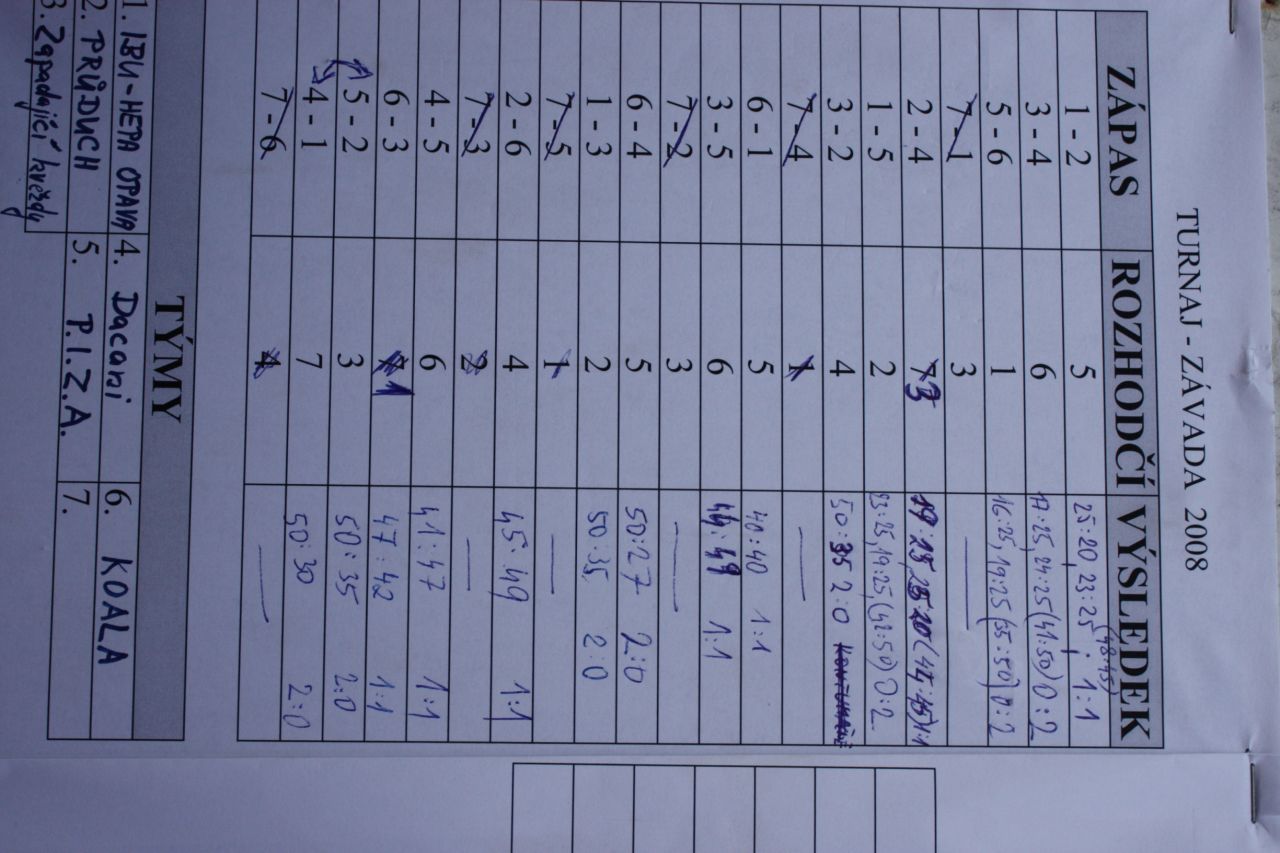 TURNAJ - ZÁVADA 2008
ZÁPAS ROZHODČÍ VÝSLEDEK
1 - 2 5 25:20, 23:25 (48:45) 1:1
3 - 4 6 17:25, 24:25 (41:50) 0:2
5 - 6 1 16:25, 19:25 (35:50) 0:2
7 - 1 3
2 - 4 3 19:25, 25:20 (44:45) 1:1
1 - 5 2 23:25, 19:25 (42:50) 0:2
3 - 2 4 50:35 2:0
7 - 4 1
6 - 1 5 40:40 1:1
3 - 5 6 44:49 1:1
7 - 2 3
6 - 4 5 50:27 2:0
1 - 3 2 50:35 2:0
7 - 5 1
2 - 6 4 45:49 1:1
7 - 3 2
4 - 5 6 41:47 1:1
6 - 3 1 47:42 1:1
5 - 2 3 50:35 2:0
4 - 1 7 50:30 2:0
7 - 6 4
TÝMY
1. IBU-HEPA OPAVA 4. Dacari 6. KOALA
2. PRŮDUCH 5. P.I.Z.A. 7.
3. Zapadající hvězdy